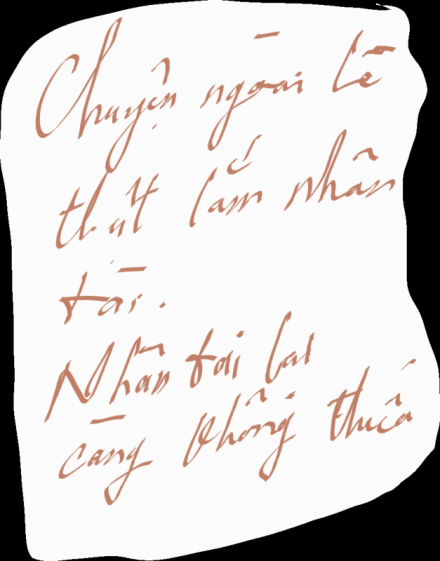 Chuyện ngoài lề
thất lắm nhân
tài.
Nhân tài lại
càng không thiếu